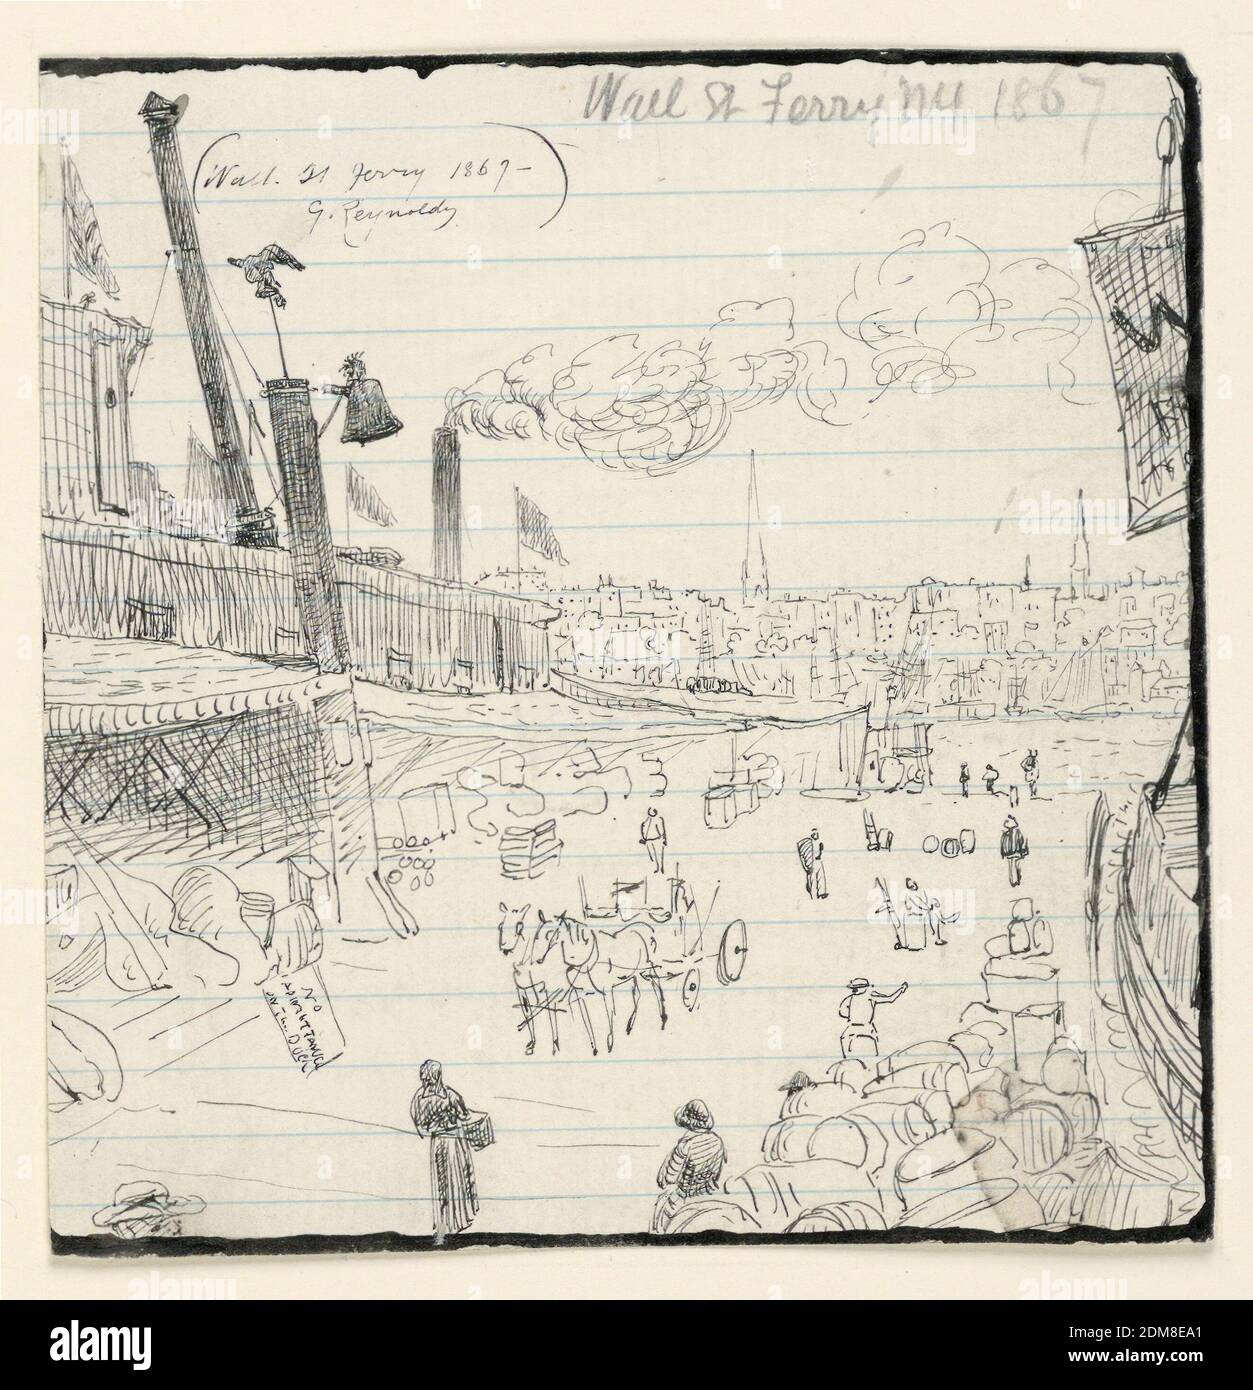 Wall St Ferry NY 1867
(Wall. St Ferry 1867-
G. Reynolds)
NO
ADMITTANCE
ON THE DOCK
alamy
Image ID: 2DM8EA1
www.alamy.com